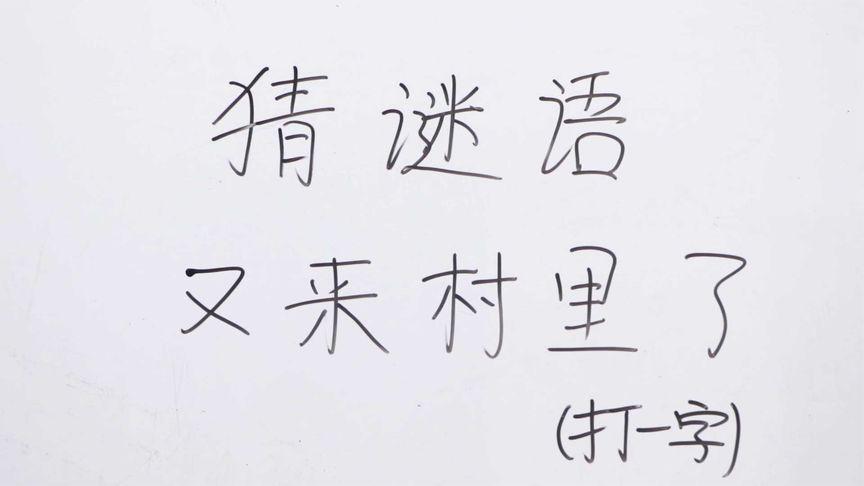 猜谜语
又来村里了
(打一字)